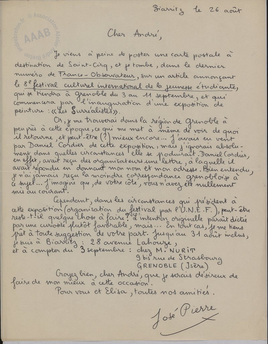 AAAB
Biarritz, le 26 août
Cher André,
Je viens à peine de poster une carte postale à
destination de Saint-Cirq, et je tombe, dans le dernier
numéro de France-Observateur, sur un article annonçant
le 8e festival culturel international de la jeunesse étudiante,
qui se tiendra à Grenoble du 3 au 11 septembre, et qui
commencera par l'inauguration d'une exposition de
peinture (« Les Surréalistes »)
Or, je me trouverai dans la région de Grenoble à
peu près à cette époque, ce qui me met à même de voir de quoi
il retourne, et peut-être (?) mieux encore. J'avais eu vent
par Daniel Cordier de cette exposition, mais j'ignorais absolument
dans quelles circonstances elle se produirait. Daniel Cordier,
en effet, avait reçu des organisateurs une lettre, à laquelle il
avait répondu en donnant mon nom et mon adresse. Bien entendu,
je n'ai jamais reçu la moindre correspondance grenobloise à
ce sujet... J'imagine que, de votre côté, vous n'avez été nullement
mis au courant.
Cependant, dans les circonstances qui président à
cette exposition (organisation du festival par l'U.N.E.F.), peut-être
reste-t-il quelque chose à faire, l'intention originelle paraît dictée
par une curiosité plutôt favorable, mais... En tout cas, je me tiens
prêt à toute suggestion de votre part. Jusqu'au 31 août inclus,
je suis à Biarritz : 28 avenue Lahouze,
et à compter du 3 septembre : chez M. NURIT
9 bis rue de Strasbourg
GRENOBLE (Isère)
Croyez bien, cher André, que je serais désireux de
faire de mon mieux à cette occasion.
Pour vous et Elisa, toutes nos amitiés.
José Pierre